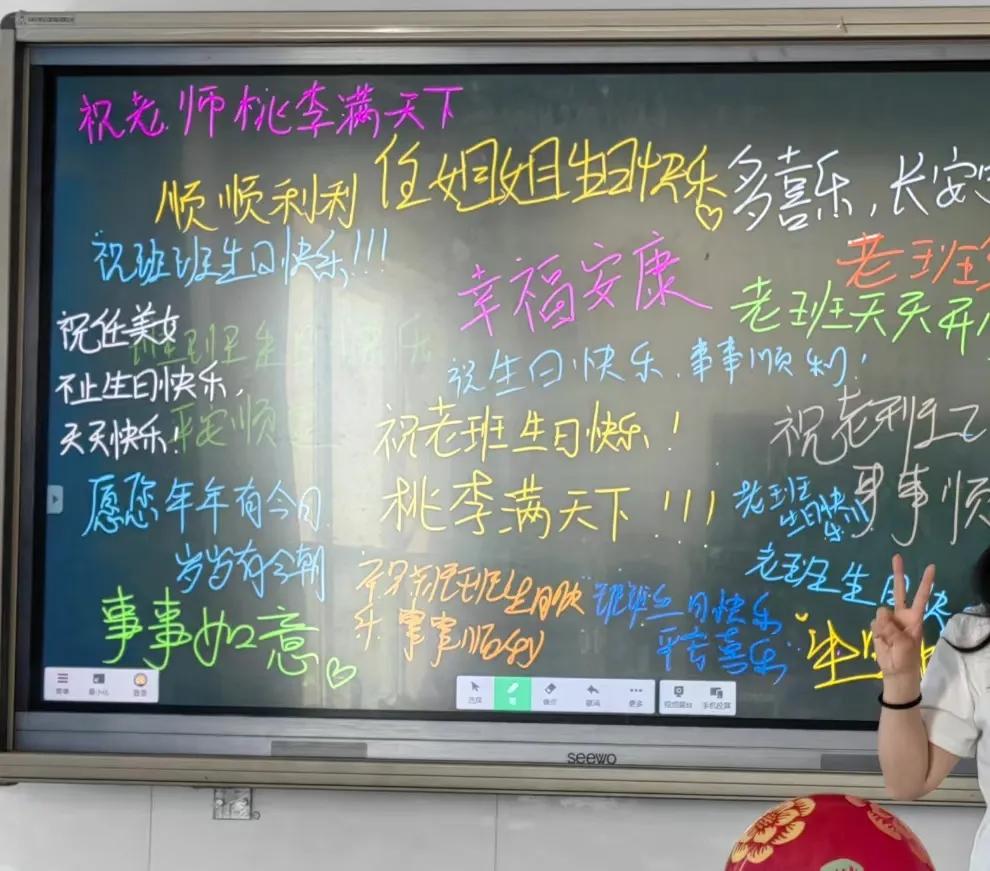 祝老师桃李满天下
任姐姐生日快乐
多喜乐，长安
顺顺利利
祝班班生日快乐!!!
老班
幸福安康
老班天天开
祝任美女
不止生日快乐，
天天快乐！
生日快乐
平安顺
祝生日快乐.事事顺利！
祝老班生日快乐！
桃李满天下!!!
祝老班
事事顺
愿您年年有今日
岁岁有今朝
老班
生日快乐
老班生日快
事事如意
祝老班班生日快
乐 事事顺利
班班生日快乐
平安喜乐
生日
菜单
最小化
登录
选择
笔
擦除
撤消
更多
视频展台
手机投屏
seewo